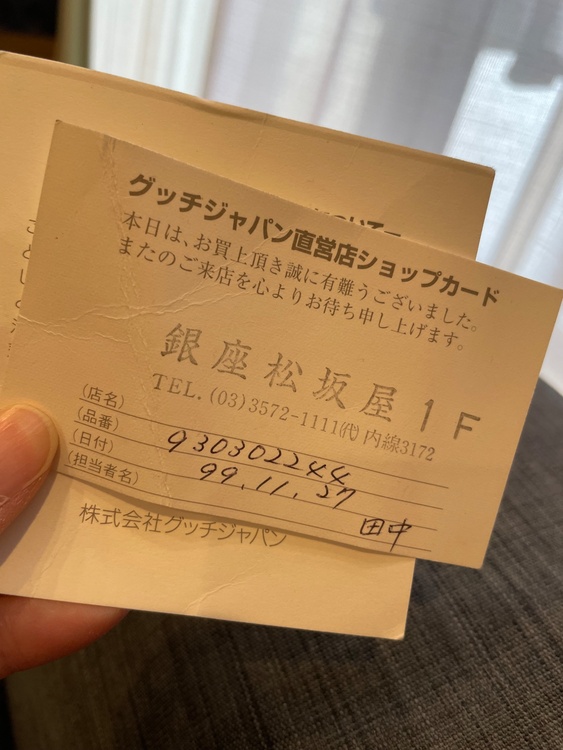 グッチジャパン直営店ショップカード
本日は、お買上頂き誠に有難うございました。
またのご来店を心よりお待ち申し上げます。
銀座松坂屋1F
TEL. (03)3572-1111㈹ 内線3172
(店名)
(品番) 930302244
(日付) 99.11.27
(担当者名) 田中
株式会社グッチジャパン